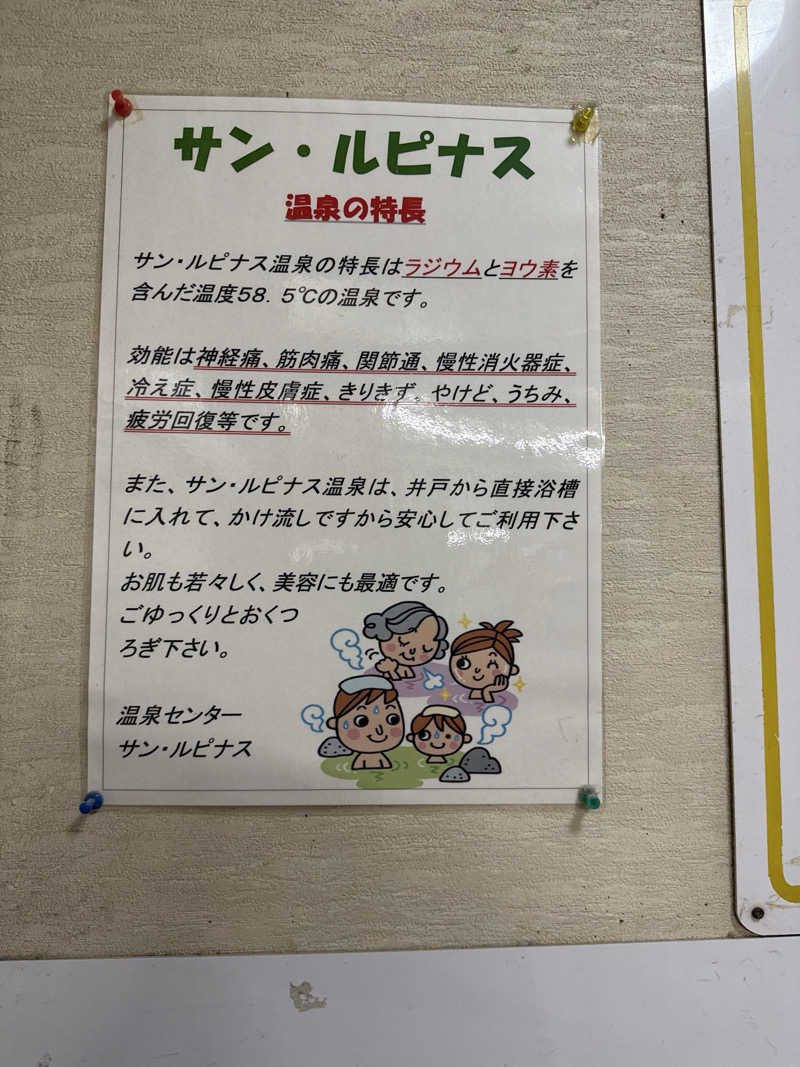 サン・ルピナス
温泉の特長
サン・ルピナス温泉の特長はラジウムとヨウ素を
含んだ温度58.5℃の温泉です。
効能は神経痛、筋肉痛、関節通、慢性消火器症、
冷え症、慢性皮膚症、きりきず。やけど、うちみ、
疲労回復等です。
また、サン・ルピナス温泉は、井戸から直接浴槽
に入れて、かけ流しですから安心してご利用下さ
い。
お肌も若々しく、美容にも最適です。
ごゆっくりとおくつ
ろぎ下さい。
温泉センター
サン・ルピナス